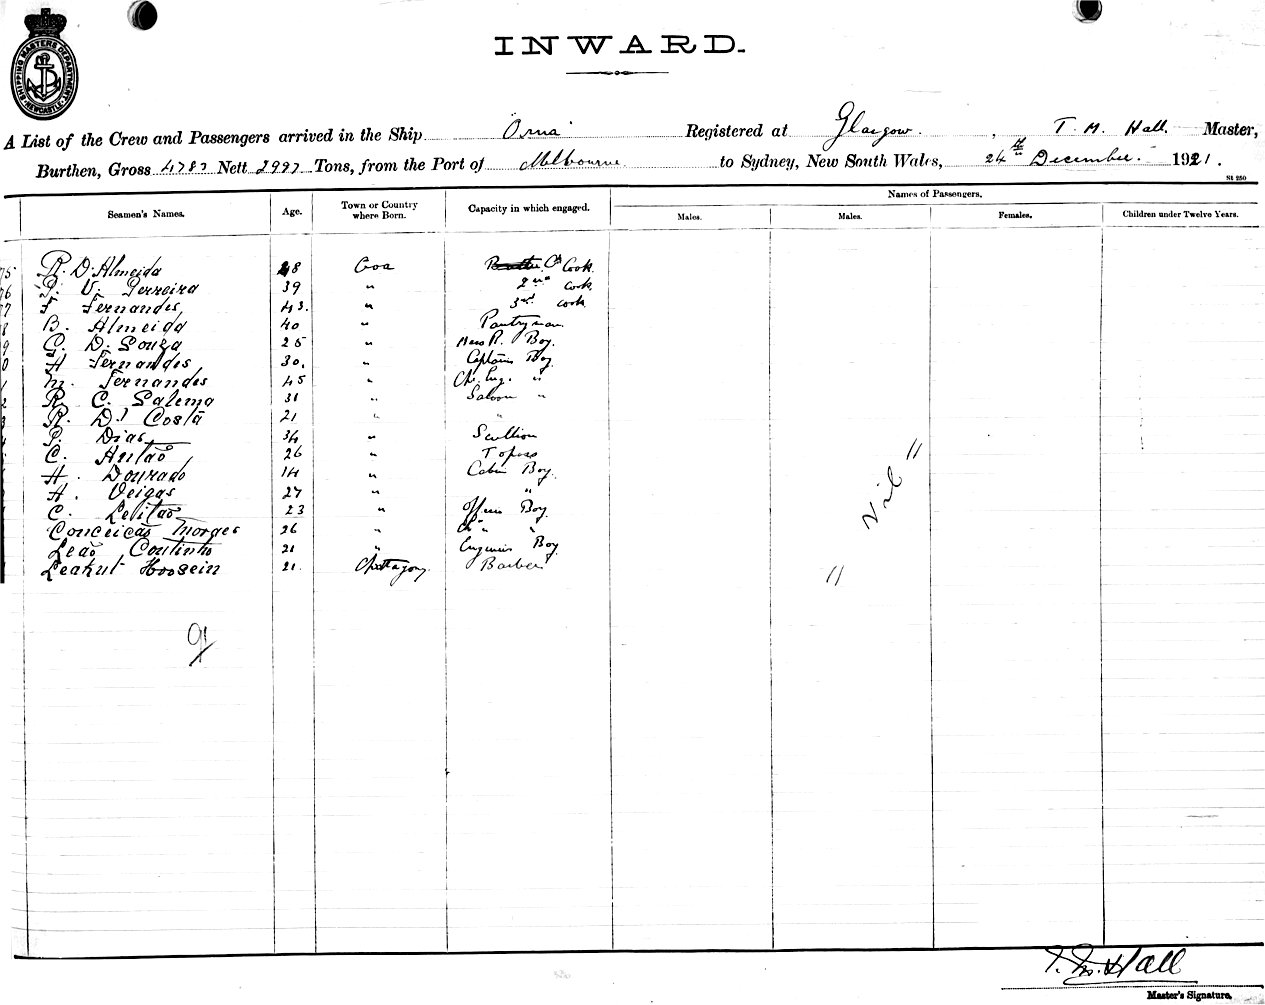 SHIPPING MASTERS DEPARTMENT NEWCASTLE
INWARD.
A List of the Crew and Passengers arrived in the Ship Orna Registered at Glasgow. , T. M. Hall. Master,
Burthen, Gross 4783 Nett 2997 Tons, from the Port of Melbourne to Sydney, New South Wales, 24th December. 1921.
St 250
Seamen's Names. Age. Town or Country where Born. Capacity in which engaged. Names of Passengers.
Males. Males. Females. Children under Twelve Years.
75 R. D. Almeida 48 Goa Ch Cook.
76 P. V. Ferreira 39 " 2nd cook.
77 F Fernandes 43. " 3rd cook
8 B. Almeida 40 " Pantryman
9 C. D. Souza 25 " Mess R. Boy.
0 A Fernandes 30. " Captains Boy
M. Fernandes 45 " Ch. Eng. "
2 R. C. Salema 31 " Saloon "
3 R. D' Costa 21 " "
P. Dias 34 " Scullion
C. Antao 26 " Topass
A. Dourado 14 " Cabin Boy.
A. Veigas 27 " "
C. Leitao 23 " Officers Boy
Conceicao Morges 26 " Ch " "
Leao Coutinho 21 " Engineers Boy
Leakut Hoosein 21. Chittagong. Barber
" Nil "
T. M. Hall
Master's Signature.